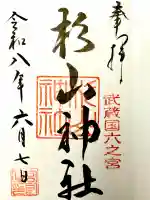 奉拝
武蔵国六之宮
杉山神社
令和八年六月七日